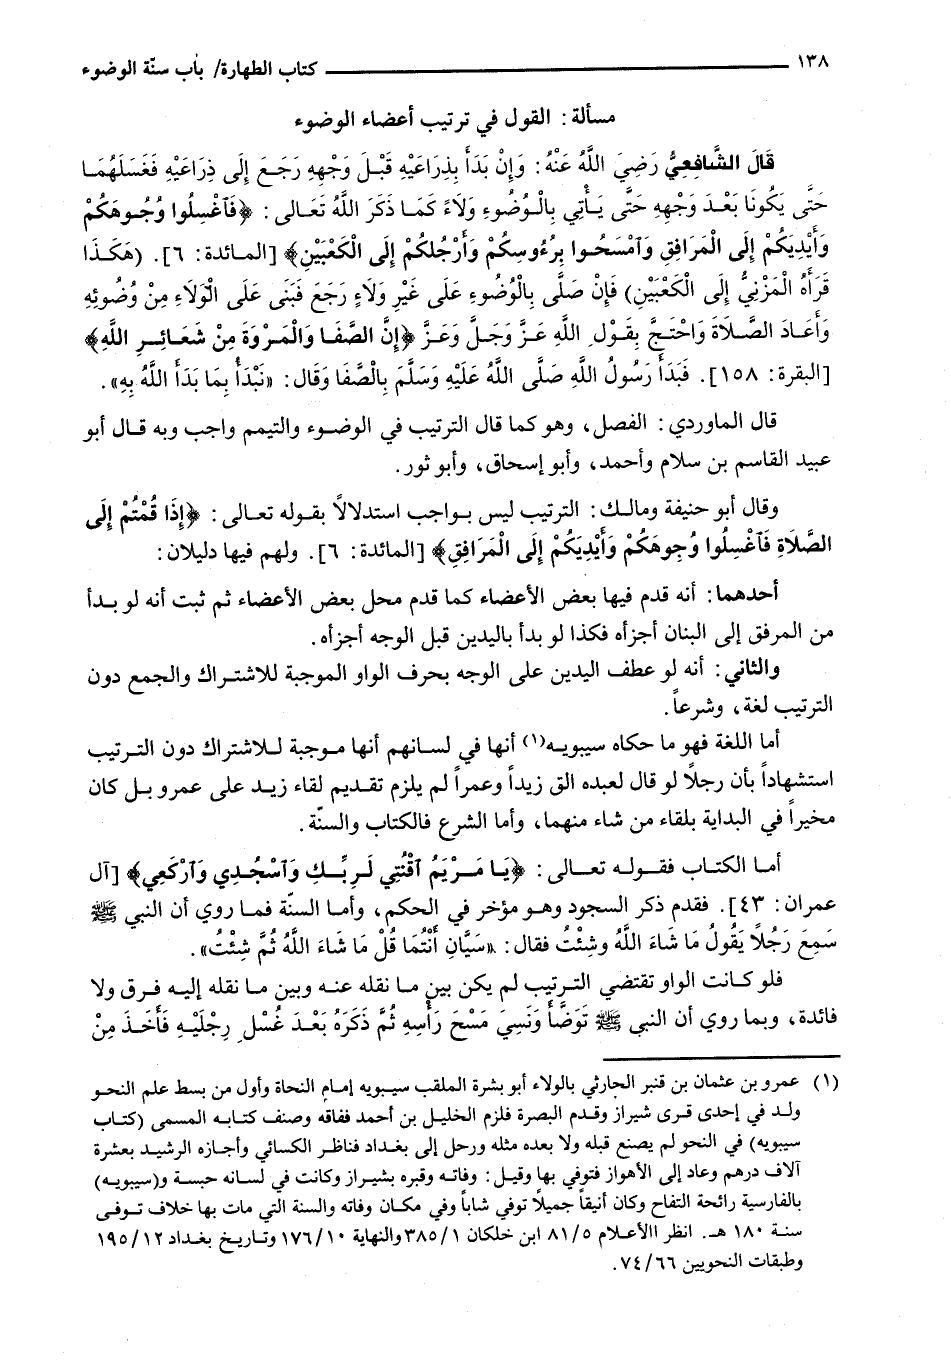 ١٣٨ ــــــــــــــــــــ كتاب الطهارة/ باب سنّة الوضوء
مسألة: القول في ترتيب أعضاء الوضوء
قَالَ الشَّافعِيُّ رَضِيَ اللَّهُ عَنْهُ: وَإِنْ بَدَأَ بِذِرَاعَيْهِ قَبْلَ وَجْهِهِ رَجَعَ إِلَى ذِرَاعَيْهِ فَغَسَلَهُمَا
حَتَّى يَكُونَا بَعْدَ وَجْهِهِ حَتَّى يَأْتِي بِالْوُضُوءِ وَلَاءً كَمَا ذَكَرَ اللَّهُ تَعَالى: ﴿فَآغْسِلُوا وُجُوهَكُمْ
وَأَيْدِيَكُمْ إِلَى الْمَرَافِقِ وَآمْسَحُوا بِرُءُوسِكُمْ وَأَرْجُلَكُمْ إِلَى الْكَعْبَيْنِ﴾ [المائدة: ٦]. (هَكَذَا
قَرَأَهُ الْمُزَنِيُّ إِلَى الْكَعْبَيْنِ) فَإِنْ صَلَّى بِالْوُضُوءِ عَلَى غَيْرِ وَلَاءٍ رَجَعَ فَبَنَى عَلَى الْوَلَاءِ مِنْ وُضُوئِهِ
وَأَعَادَ الصَّلَاةَ وَاحْتَجَّ بِقَوْلِ اللَّهِ عَزَّ وَجَلَّ وَعَزَّ ﴿إِنَّ الصَّفَا وَالْمَرْوَةَ مِنْ شَعَائِرِ اللَّهِ﴾
[البقرة: ١٥٨]. فَبَدَأَ رَسُولُ اللَّهِ صَلَّى اللَّهُ عَلَيْهِ وَسَلَّمَ بِالْصَّفَا وَقَالَ: «نَبْدَأُ بِمَا بَدَأَ اللَّهُ بِهِ».
قال الماوردي: الفصل، وهو كما قال الترتيب في الوضوء والتيمم واجب وبه قال أبو
عبيد القاسم بن سلام وأحمد، وأبو إسحاق، وأبو ثور.
وقال أبو حنيفة ومالك: الترتيب ليس بواجب استدلالاً بقوله تعالى: ﴿إِذَا قُمْتُمْ إِلَى
الصَّلَاةِ فَآغْسِلُوا وُجُوهَكُمْ وَأَيْدِيَكُمْ إِلَى الْمَرَافِقِ﴾ [المائدة: ٦]. ولهم فيها دليلان:
أحدهما: أنه قدم فيها بعض الأعضاء كما قدم محل بعض الأعضاء ثم ثبت أنه لو بدأ
من المرفق إلى البنان أجزأه فكذا لو بدأ باليدين قبل الوجه أجزأه.
والثاني: أنه لو عطف اليدين على الوجه بحرف الواو الموجبة للاشتراك والجمع دون
الترتيب لغة، وشرعاً.
أما اللغة فهو ما حكاه سيبويه(١) أنها في لسانهم أنها موجبة للاشتراك دون الترتيب
استشهاداً بأن رجلاً لو قال لعبده الق زيداً وعمراً لم يلزم تقديم لقاء زيد على عمرو بل كان
مخيراً في البداية بلقاء من شاء منهما، وأما الشرع فالكتاب والسنّة.
أما الكتاب فقوله تعالى: ﴿يَا مَرْيَمُ آقْنُتِي لَرِبِّكِ وَآسْجُدِي وَآرْكَعِي﴾ [آل
عمران: ٤٣]. فقدم ذكر السجود وهو مؤخر في الحكم، وأما السنّة فما روي أن النبي ﷺ
سَمِعَ رَجُلاً يَقُولُ مَا شَاءَ اللَّهُ وشِئْتُ فقال: «سَيَّانِ أَنْتُمَا قُلْ مَا شَاءَ اللَّهُ ثُمَّ شِئْتُ».
فلو كانت الواو تقتضي الترتيب لم يكن بين ما نقله عنه وبين ما نقله إليه فرق ولا
فائدة، وبما روي أن النبي ﷺ تَوَضَّأَ وَنَسِيَ مَسْحَ رَأْسِهِ ثُمَّ ذَكَرَهُ بَعْدَ غُسْلِ رِجْلَيْهِ فَأَخَذَ مِنْ
(١) عمرو بن عثمان بن قنبر الحارثي بالولاء أبو بشرة الملقب سيبويه إمام النحاة وأول من بسط علم النحو
ولد في إحدى قرى شيراز وقدم البصرة فلزم الخليل بن أحمد ففاقه وصنف كتابه المسمى (كتاب
سيبويه) في النحو لم يصنع قبله ولا بعده مثله ورحل إلى بغداد فناظر الكسائي وأجازه الرشيد بعشرة
آلاف درهم وعاد إلى الأهواز فتوفي بها وقيل: وفاته وقبره بشيراز وكانت في لسانه حبسة و(سيبويه)
بالفارسية رائحة التفاح وكان أنيقاً جميلاً توفي شاباً وفي مكان وفاته والسنة التي مات بها خلاف توفى
سنة ١٨٠ هـ. انظر االأعلام ٨١/٥ ابن خلكان ٣٨٥/١ والنهاية ١٧٦/١٠ وتاريخ بغداد ١٩٥/١٢
وطبقات النحويين ٧٤/٦٦.